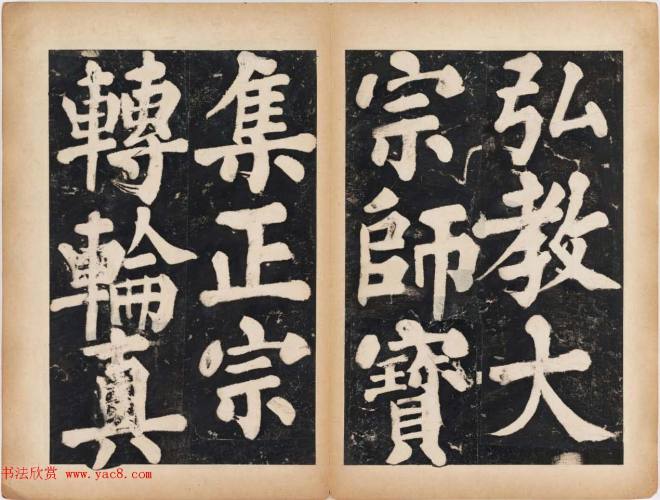 弘教大
宗師寶
集正宗
轉輪真
书法欣赏 www.yac8.com